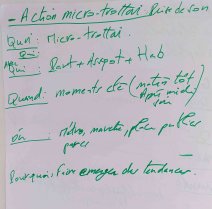 - Action micro-trottoir Prise de son
Quoi: Micro-trottoir.
Qui:
Qui: Bout + Asspot + Hab
Quand: moments clé (matin tôt
Après midi
soir
où: Métro, marché, place publics
parcs
Pourquoi, faire émerger des tendances.